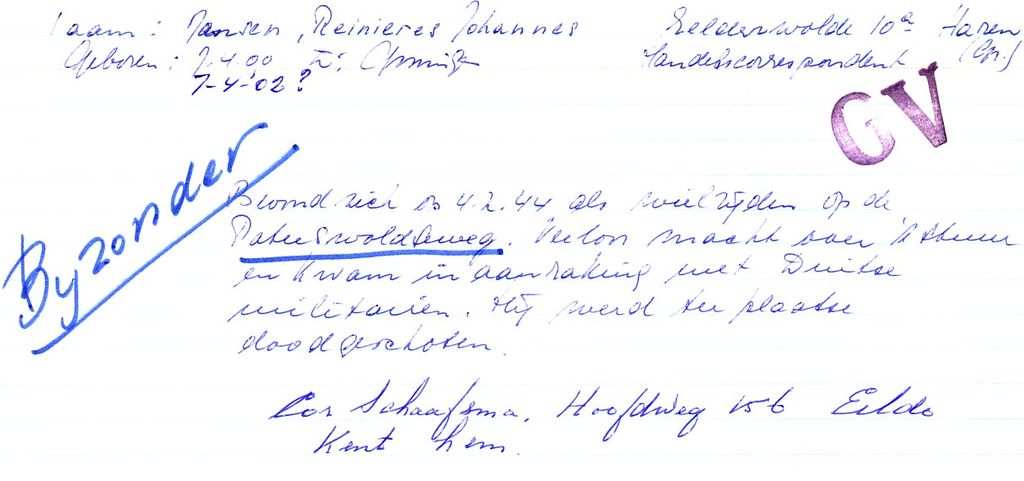 Naam: Jansen, Reinieres Johannes
Eelderwolde 10a Haren
Geboren: 7.4.00 te: Groningen
Handelscorrespondent (Gr.)
7-4-02?
GV
Byzonder
Bevond zich op 4.2.44 als wielrijder op de
Paterswoldseweg. Verloor macht over 't stuur
en kwam in aanraking met Duitse
militairen. Hij werd ter plaatse
doodgeschoten.
Cor Schaafsma, Hoofdweg 156 Eelde
Kent hem.